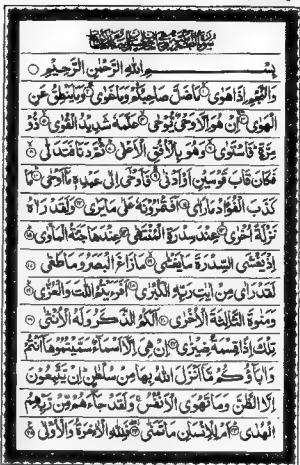 بِسْمِ اللهِ الرَّحْمٰنِ الرَّحِيْمِ
وَالنَّجْمِ اِذَا هَوٰى مَا ضَلَّ صَاحِبُكُمْ وَمَا غَوٰى وَمَا يَنْطِقُ عَنِ
الْهَوٰى اِنْ هُوَ اِلَّا وَحْيٌ يُّوْحٰى عَلَّمَهٗ شَدِيْدُ الْقُوٰى ذُوْ
مِرَّةٍ فَاسْتَوٰى وَهُوَ بِالْاُفُقِ الْاَعْلٰى ثُمَّ دَنَا فَتَدَلّٰى
فَكَانَ قَابَ قَوْسَيْنِ اَوْ اَدْنٰى فَاَوْحٰٓى اِلٰى عَبْدِهٖ مَآ اَوْحٰى مَا
كَذَبَ الْفُؤَادُ مَا رَاٰى اَفَتُمٰرُوْنَهٗ عَلٰى مَا يَرٰى وَلَقَدْ رَاٰهُ
نَزْلَةً اُخْرٰى عِنْدَ سِدْرَةِ الْمُنْتَهٰى عِنْدَهَا جَنَّةُ الْمَاْوٰى
اِذْ يَغْشَى السِّدْرَةَ مَا يَغْشٰى مَا زَاغَ الْبَصَرُ وَمَا طَغٰى
لَقَدْ رَاٰى مِنْ اٰيٰتِ رَبِّهِ الْكُبْرٰى اَفَرَءَيْتُمُ اللّٰتَ وَالْعُزّٰى
وَمَنٰوةَ الثَّالِثَةَ الْاُخْرٰى اَلَكُمُ الذَّكَرُ وَلَهُ الْاُنْثٰى
تِلْكَ اِذًا قِسْمَةٌ ضِيْزٰى اِنْ هِيَ اِلَّآ اَسْمَآءٌ سَمَّيْتُمُوْهَآ اَنْتُمْ
وَاٰبَآؤُكُمْ مَّآ اَنْزَلَ اللهُ بِهَا مِنْ سُلْطٰنٍ اِنْ يَّتَّبِعُوْنَ
اِلَّا الظَّنَّ وَمَا تَهْوَى الْاَنْفُسُ وَلَقَدْ جَآءَهُمْ مِّنْ رَّبِّهِمُ
الْهُدٰى اَمْ لِلْاِنْسَانِ مَا تَمَنّٰى فَلِلّٰهِ الْاٰخِرَةُ وَالْاُوْلٰى